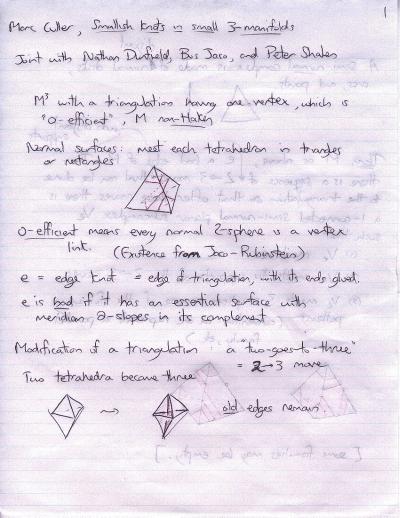 1
Marc Culler, Smallish knots in small 3-manifolds
Joint with Nathan Dunfield, Bus Jaco, and Peter Shalen
M³ with a triangulation having one vertex, which is
"0-efficient", M non-Haken
Normal surfaces: meet each tetrahedron in triangles
or rectangles
0-efficient means every normal 2-sphere is a vertex
link. (Existence from Jaco-Rubinstein)
e = edge knot = edge of triangulation, with its ends glued.
e is bad if it has an essential surface with
meridian ∂-slopes in its complement
Modification of a triangulation: a "two-goes-to-three"
= 2→3 move
Two tetrahedra become three
old edges remain.